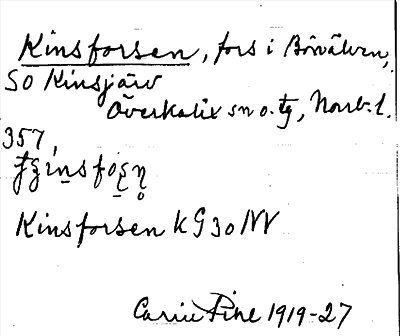 Kinsforsen, fors i Börälven,
SO Kinsjärv
Överkalix sn o. tg, Norrb. l.
357,
Kinsforsen KG 30 NV
1919-27